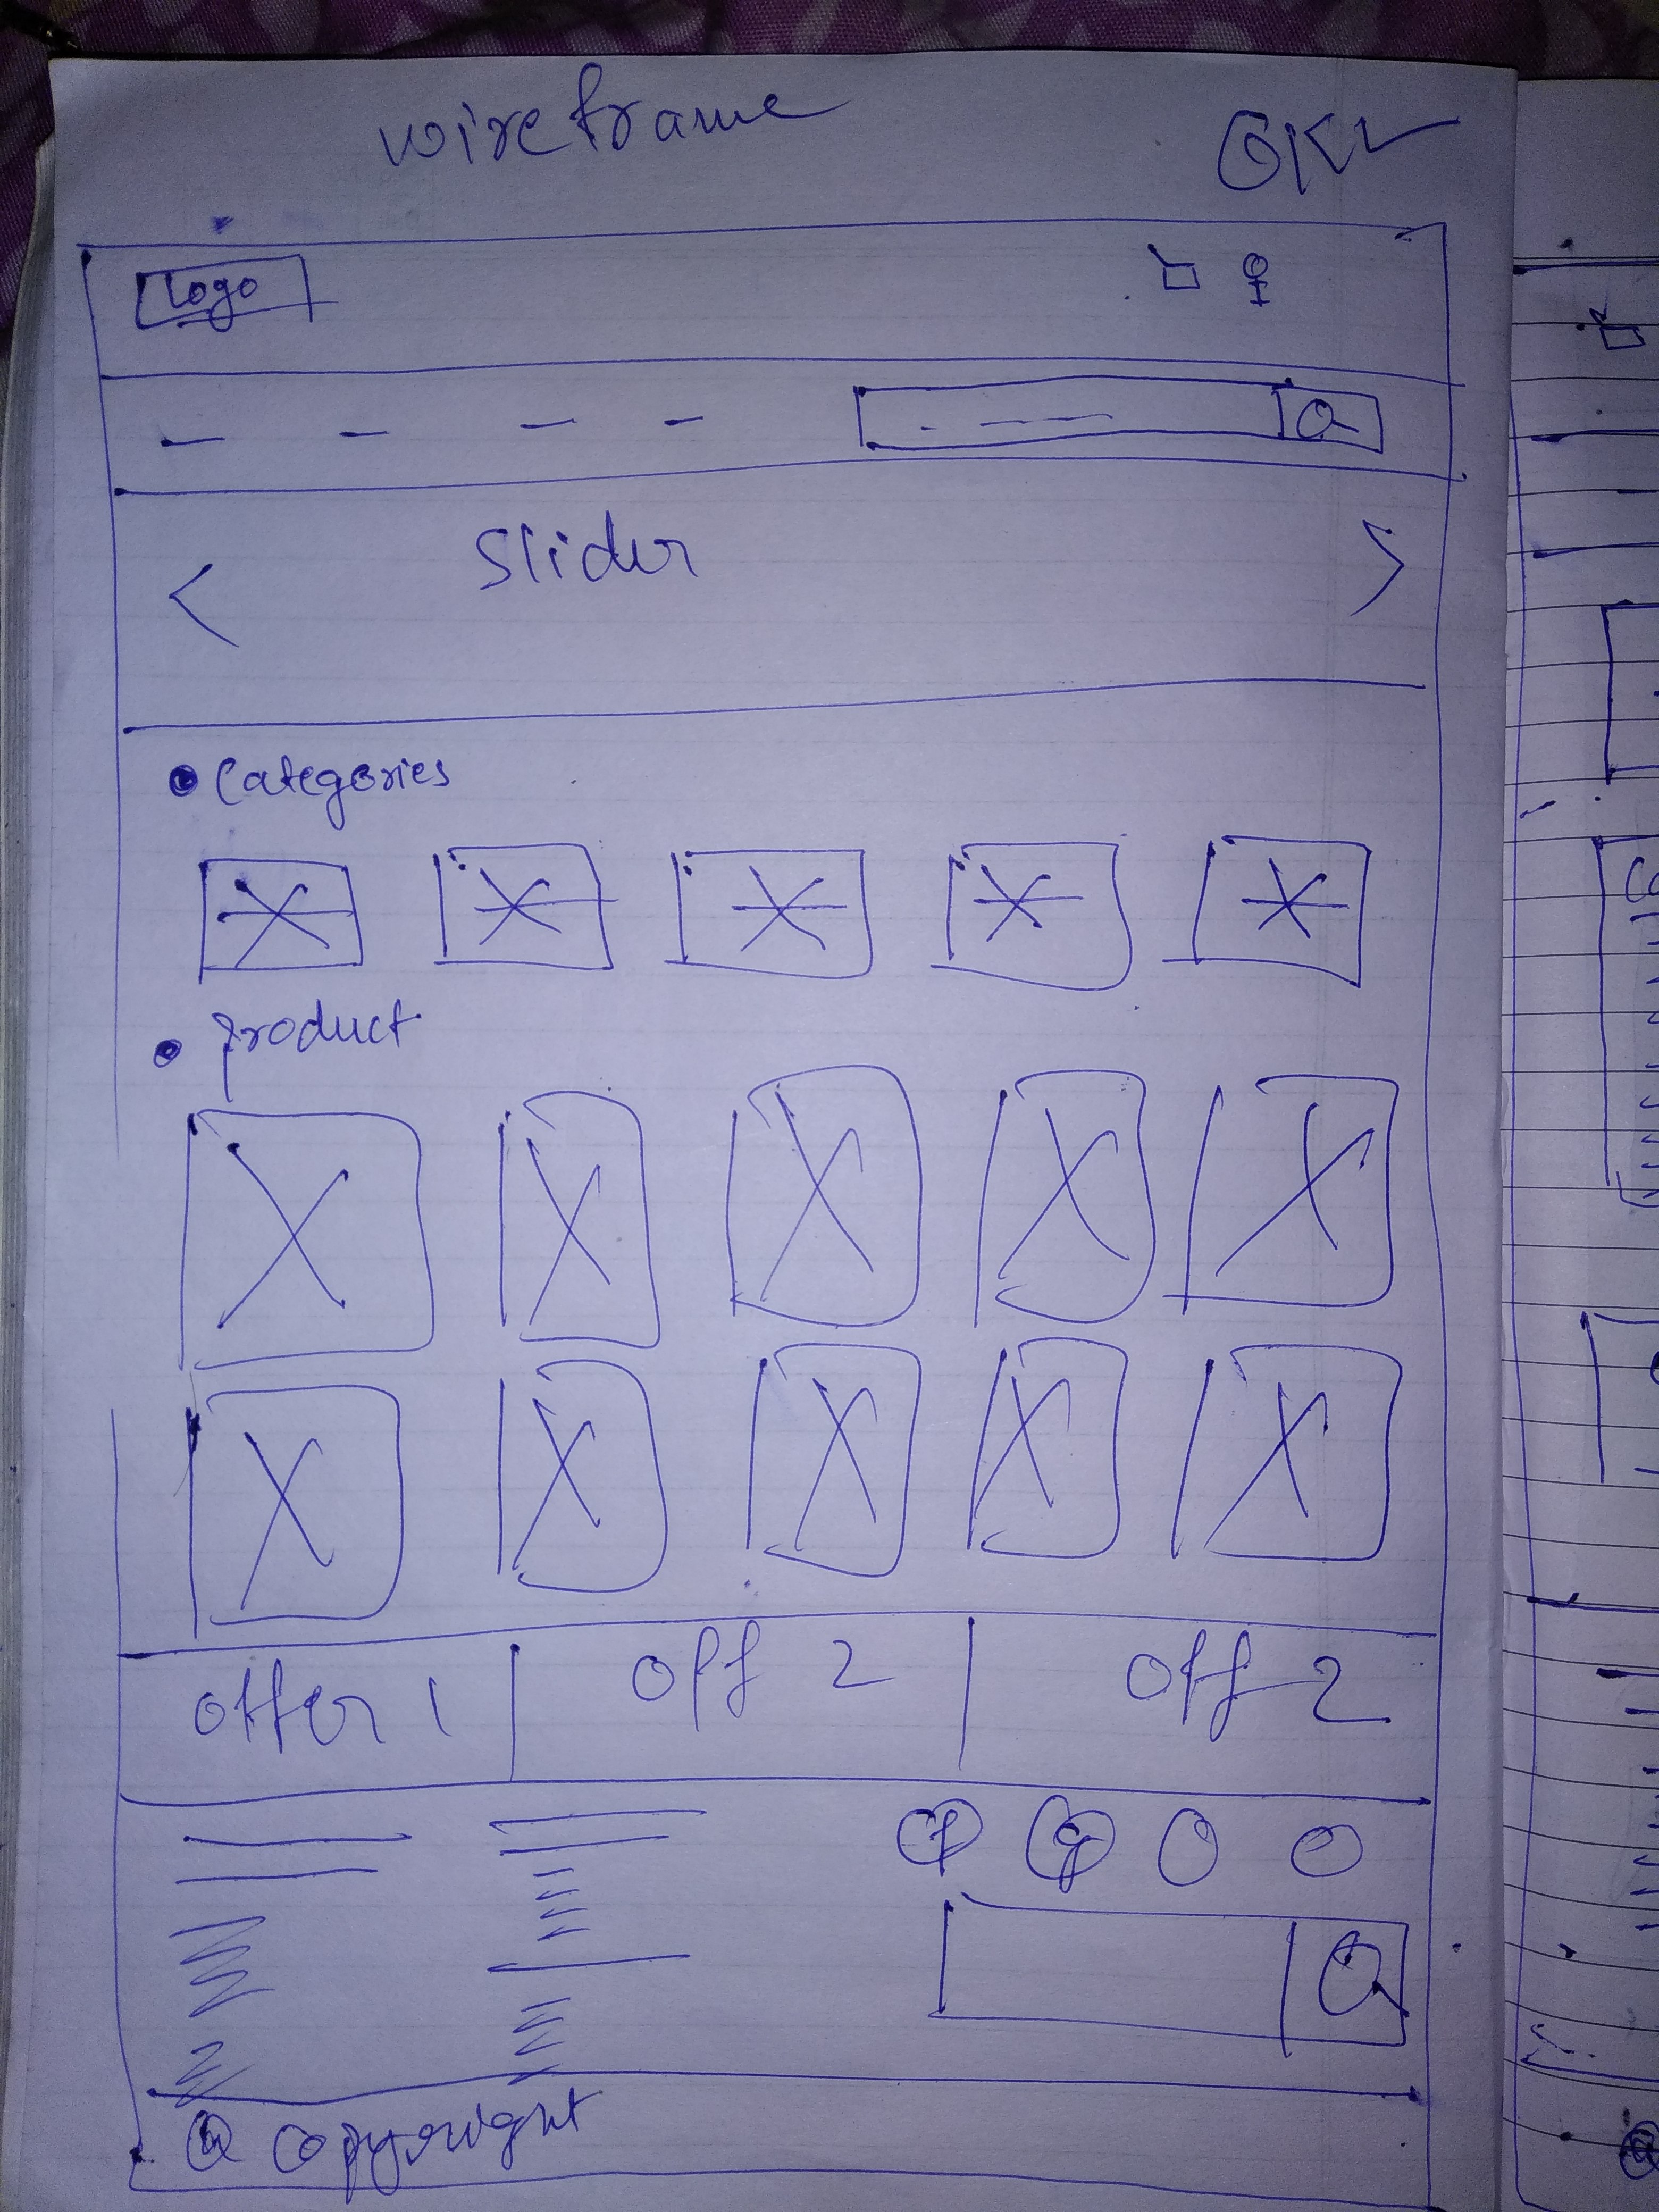 wireframe
Logo
Slider
Categories
Product
Offer 1
Off 2
Off 2
f
g
copyright